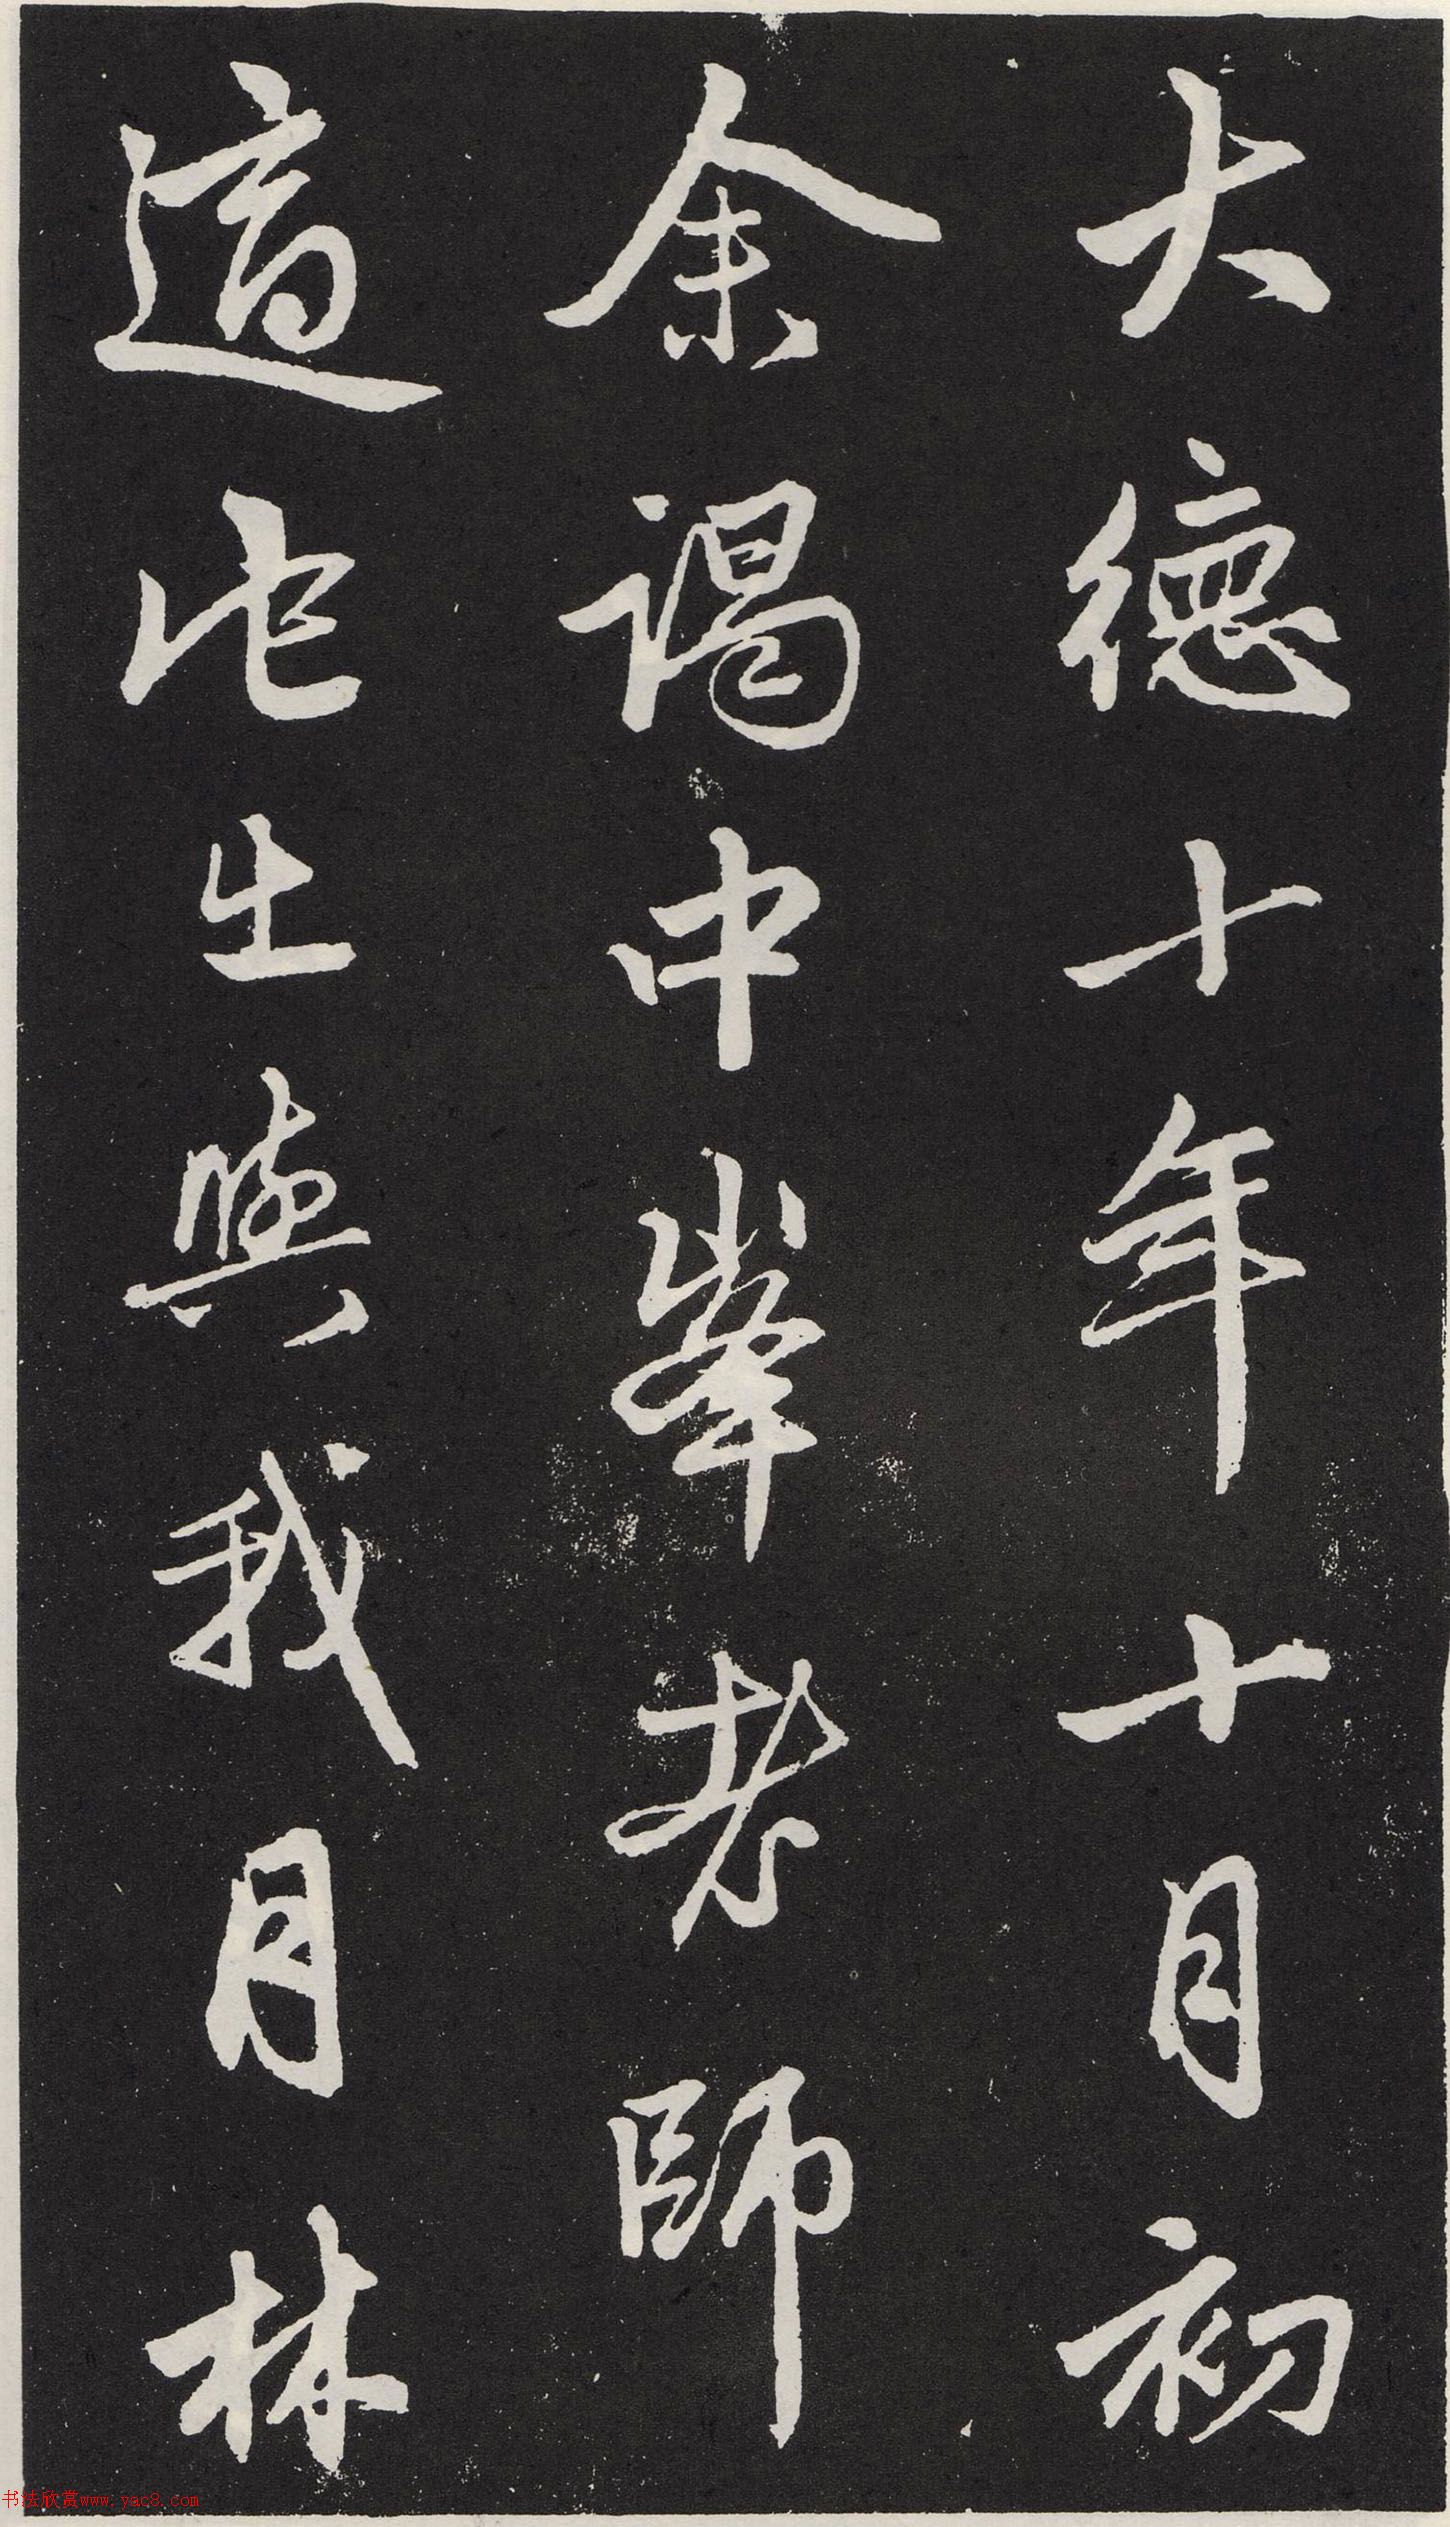 大德十年十月初
余謁中峯老師
適此生與我月林
书法欣赏www.yac8.com